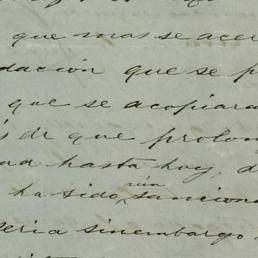 que mas se acer
dación que se p
que se acopiara
s de que prolon
ud hasta hoy, d
aún
ha sido sanciona
seria sinembargo